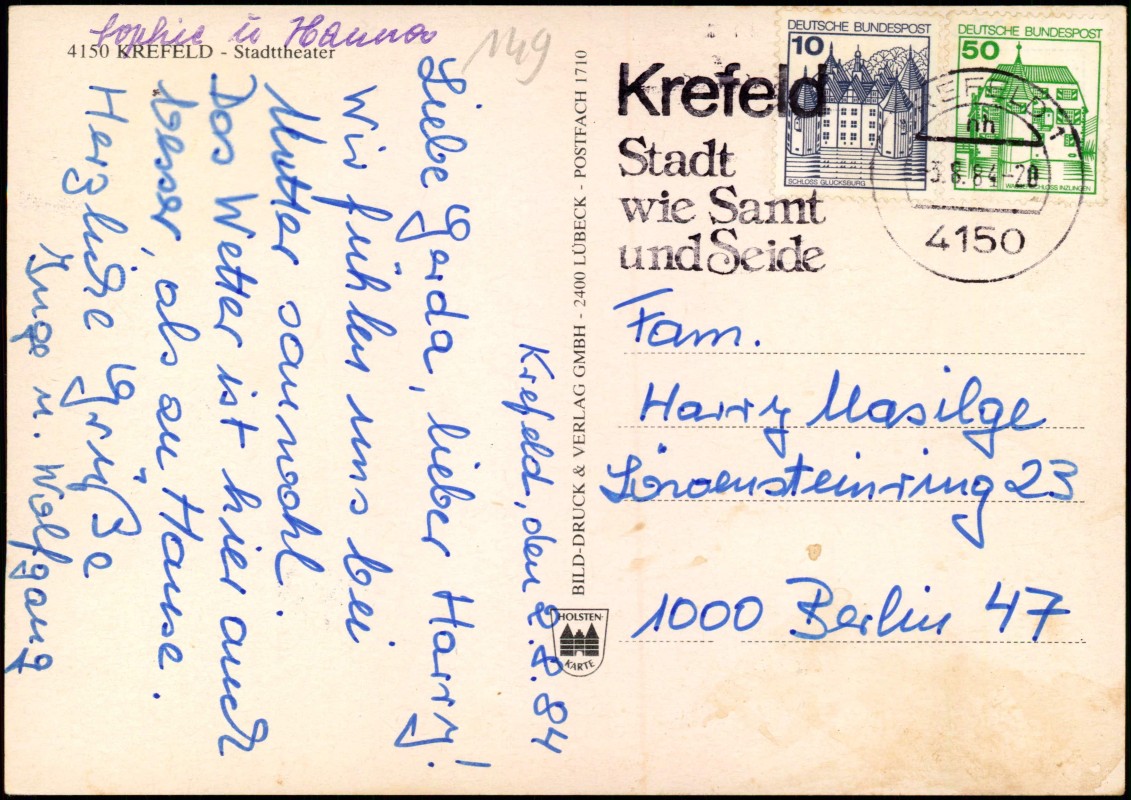 Sophie u Hanna
4150 KREFELD - Stadttheater
149
Krefeld, den 2.8.84
Liebe Gerda, lieber Harry!
Wir fühlen uns bei
Mutter sauwohl.
Das Wetter ist hier auch
besser, als zu Hause.
Herzliche Grüße
Inge u. Wolfgang
BILD-DRUCK & VERLAG GMBH - 2400 LÜBECK - POSTFACH 1710
HOLSTEN-
KARTE
Krefeld
Stadt
wie Samt
und Seide
DEUTSCHE BUNDESPOST
10
SCHLOSS GLÜCKSBURG
DEUTSCHE BUNDESPOST
50
WASSERSCHLOSS INZLINGEN
KREFELD 1
nh
3.8.84-20
4150
Fam.
Harry Masilge
Löwensteinring 23
1000 Berlin 47